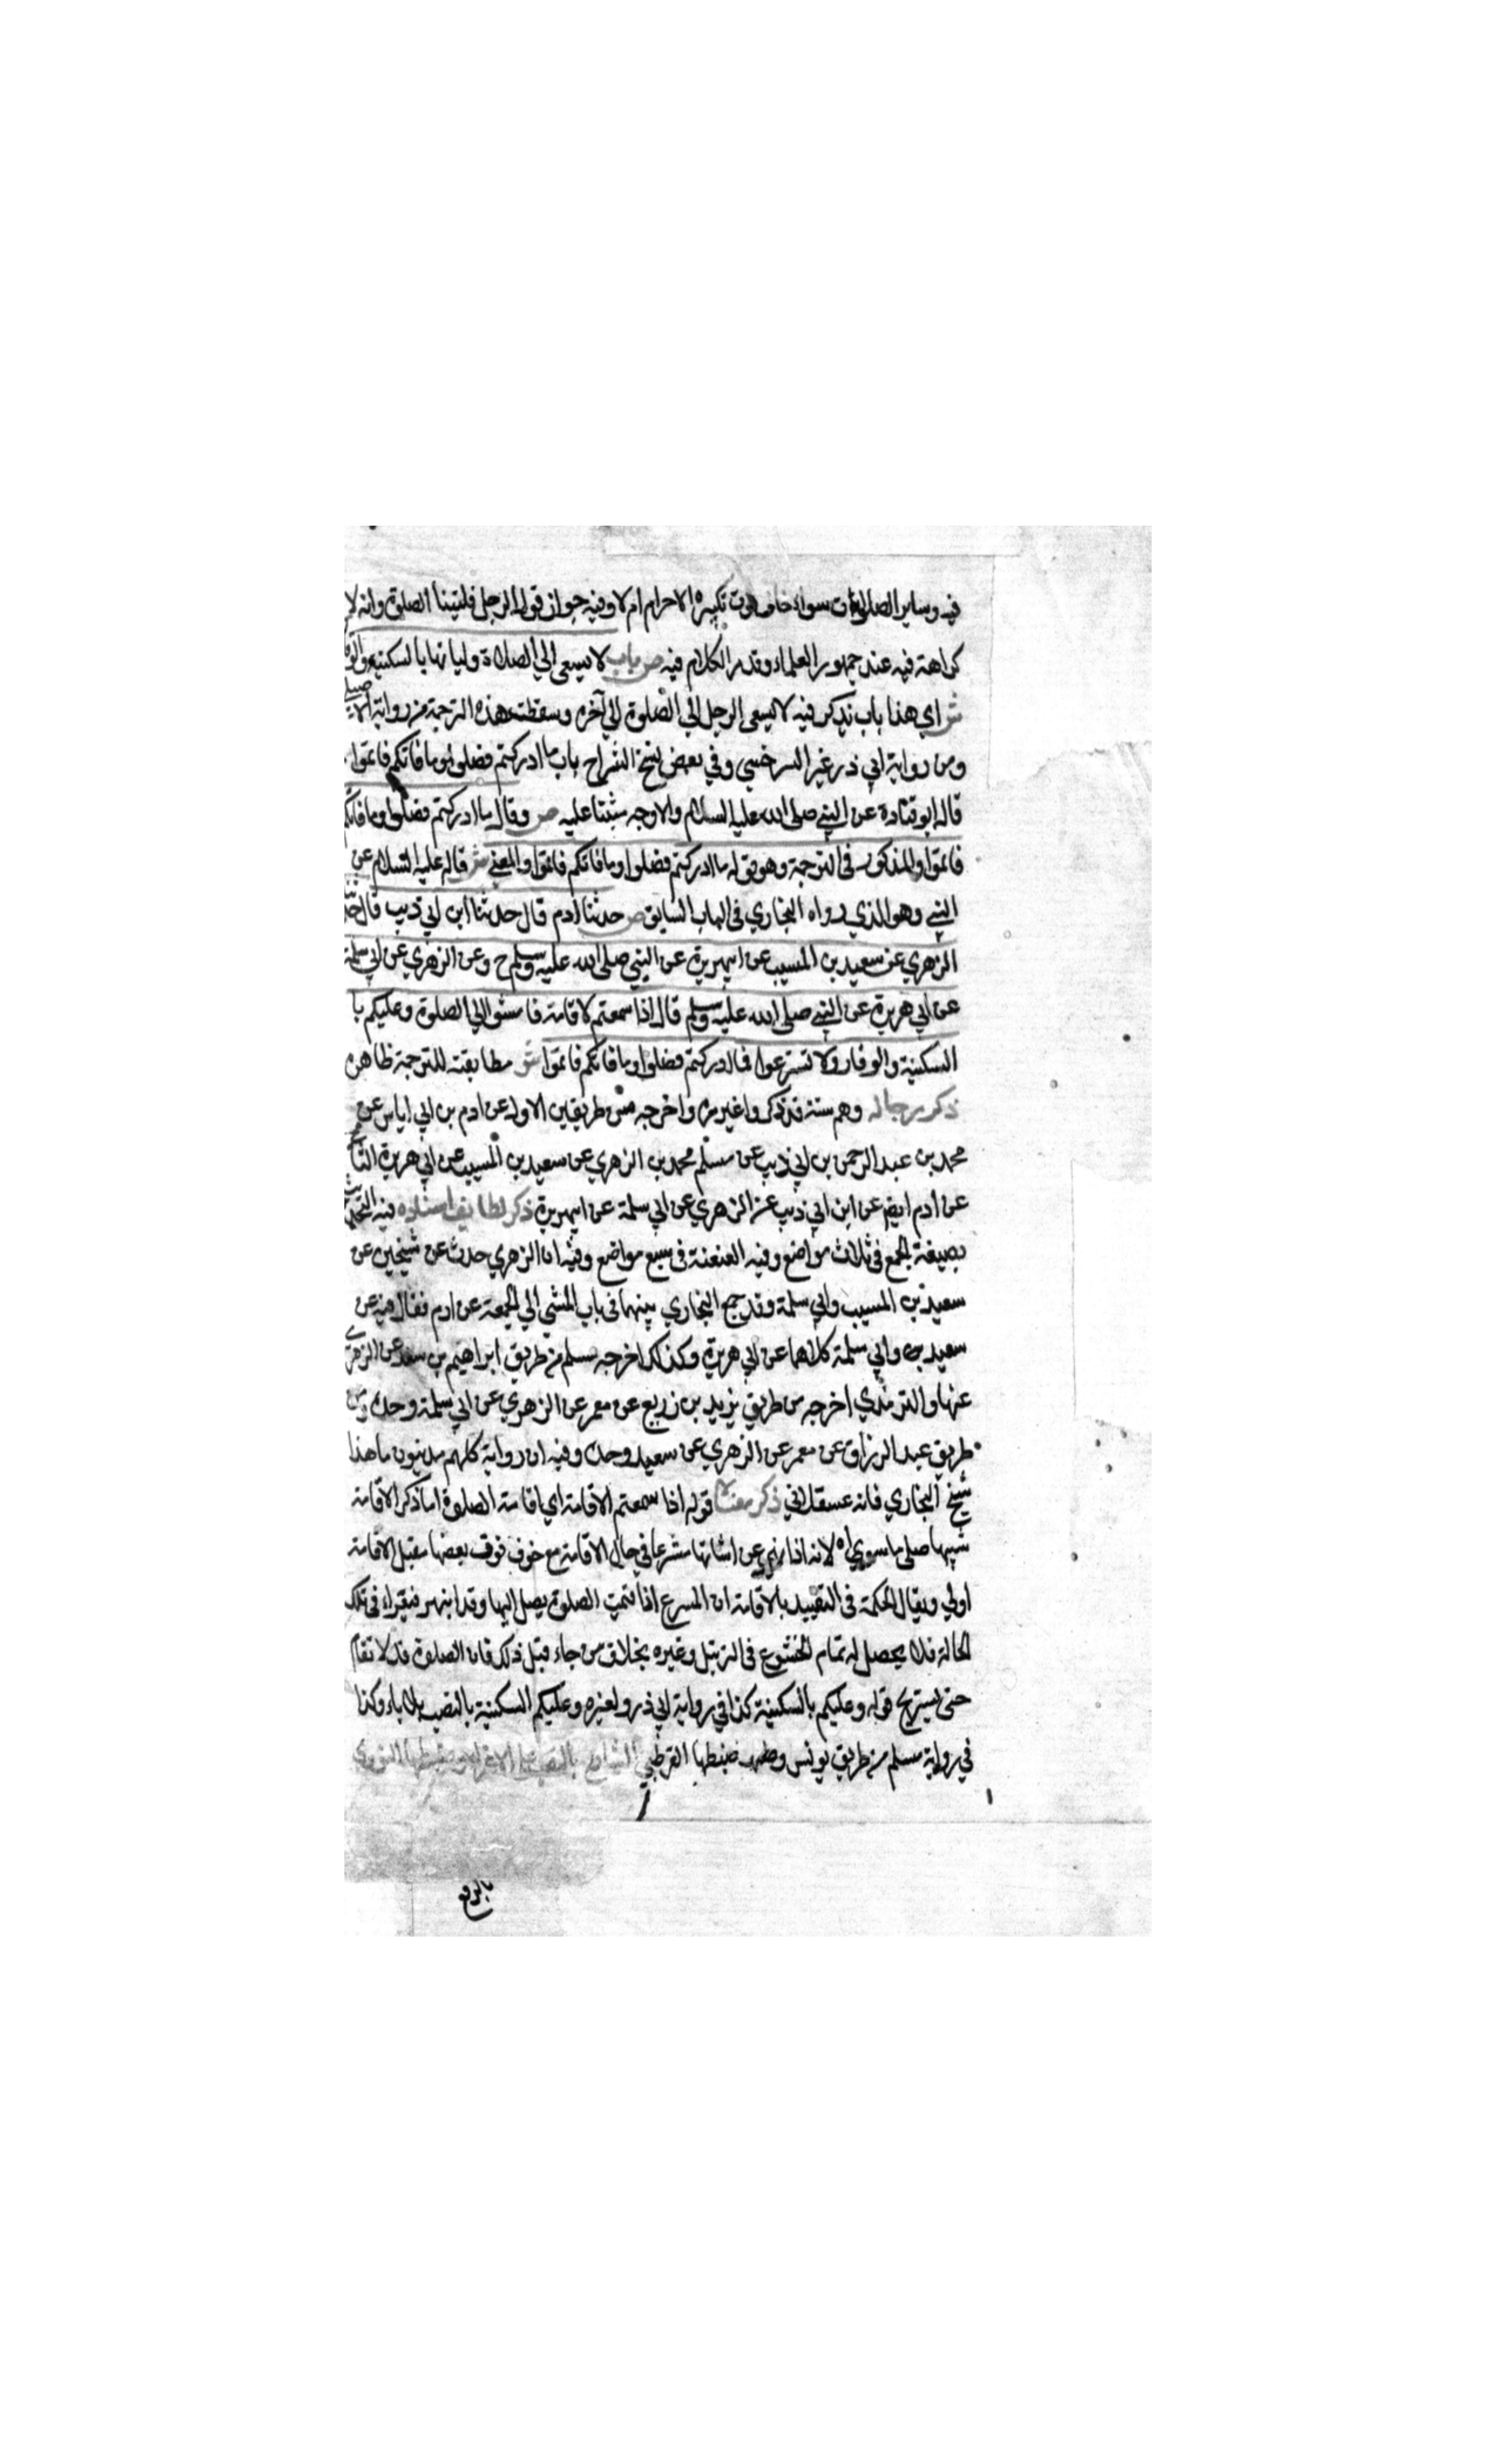 فيه وساير الصلوات سواء خاف فوت تكبيرة الاحرام ام لا وفيه جواز قول الرجل فاتتنا الصلوة وانه لا
كراهة فيه عند جمهور العلماء وقد مر الكلام فيه ص باب لا يسعى الي الصلاة ولياتها بالسكينة والوقا
ش اي هذا باب يذكر فيه لا يسعى الرجل الي الصلوة الي آخره وسقطت هذه الترجمة من رواية الاصيلي
ومن رواية ابي ذر غير السرخسي وفي بعض نسخ الشراح باب ما ادركتم فصلوا وما فاتكم فاتموا
قاله ابو قتادة عن النبي صلى الله عليه السلام والاوجه ص وقال ما ادركتم فصلوا وما فاتكم
فاتموا والمذكور في الترجمة وهو قوله ما ادركتم فصلوا وما فاتكم فاتموا والمعني ش قاله عليه السلام عن
النبي وهو الذي رواه البخاري في الباب السابق ص حدثنا ادم قال حدثنا ابن ابي ذيب قال حدثنا
الزهري عن سعيد بن المسيب عن ابي هريرة عن النبي صلى الله عليه وسلم ح وعن الزهري عن ابي سلمة
عن ابي هريرة عن النبي صلى الله عليه وسلم قال اذا سمعتم لاقامة فامشوا الي الصلوة وعليكم با
السكينة والوقار ولا تسترعوا فما ادركتم فصلوا وما فاتكم فاتموا ش مطابقته للترجمة ظاهرة
ذكر رجاله وهم ستة قد ذكروا غير مرة واخرجه من طريقين الاول عن ادم بن ابي اياس عن
محمد بن عبد الرحمن بن ابي ذيب عن مسلم محمد بن الزهري عن سعيد بن المسيب عن ابي هريرة الثا
عن ادم ايضا عن ابن ابي ذيب عن الزهري عن ابي سلمة عن ابي هريرة ذكر لطايف اسناده فيه التحديث
بصيغة الجمع في ثلاث مواضع وفيه العنعنة في سبع مواضع وفيه ان الزهري حدث عن شيخين عن
سعيد بن المسيب وابي سلمة وقد جمع البخاري بينهما في باب المشي الي الجمعة عن ادم فقال فيه عن
سعيد وابي سلمة كلاهما عن ابي هريرة وكذلك اخرجه مسلم من طريق ابراهيم بن سعد عن الزهري
عنهما والترمذي اخرجه من طريق يزيد بن زريع عن معمر عن الزهري عن ابي سلمة وحده ومن
طريق عبد الرزاق عن معمر عن الزهري عن سعيد وحده وفيه ان رواية كلهم مدنيون ما هذا
شيخ البخاري فانه عسقلاني ذكر معناه قوله اذا سمعتم الاقامة اي اقامة الصلوة اما ذكر الاقامة
لانه اذا نهي عن اتيانها مشرعا في حال الاقامة مع خوف فوت بعضها فقبل الاقامة
اولي ويقال الحكمة في التقييد بالاقامة ان المسرع اذا قيمت الصلوة يصل اليها وقد انبهر فيقراء في تلك
الحالة فلا يحصل له تمام الخشوع في الترتيل وغيره بخلاف من جاء قبل ذلك فان الصلوة قد لا تقام
حتى يستريح قوله وعليكم بالسكينة كذا في رواية ابي ذر ولغيره وعليكم السكينة بالنصب بلا باء وكذا
في رواية مسلم من طريق يونس وضبطها القرطبي الشارح بالنصب علي الاغراء وضبطها النووي
بالرفع